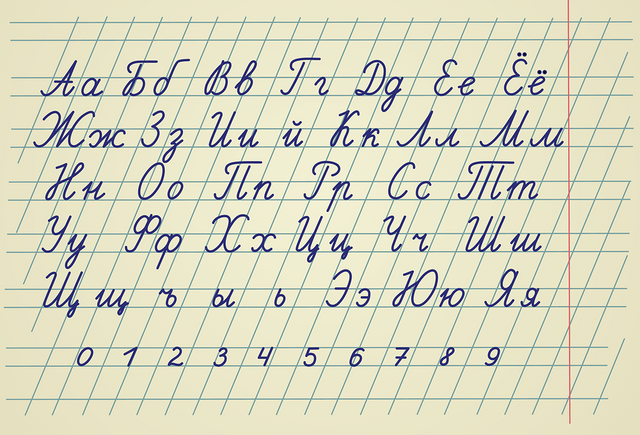 Аа Бб Вв Гг Дд Ее Ёё
Жж Зз Ии й Кк Лл Мм
Нн Оо Пп Рр Сс Тт
Уу Фф Хх Цц Чч Шш
Щщ ъ ы ь Ээ Юю Яя
0 1 2 3 4 5 6 7 8 9